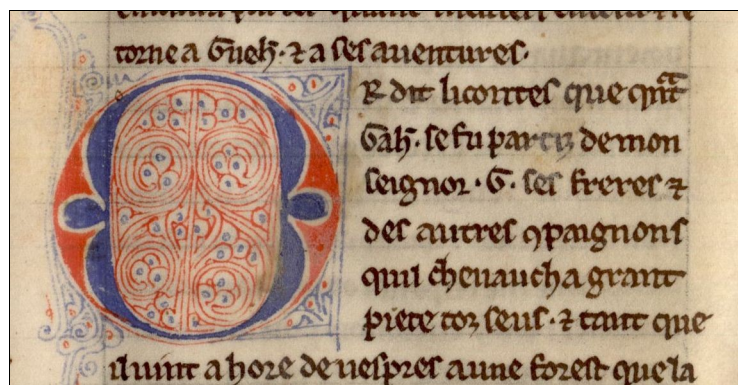 torne a Gueh̄. ⁊ a ses auentures.
OR dit li contes que qnᵃt
Gah̄. se fu partiz de mon
seignor. G. ses freres ⁊
des autres ꝯpaignons
quil cheuaucha grant
piece toz seus. ⁊ tant que
il uint a hore de uespres a une forest que la